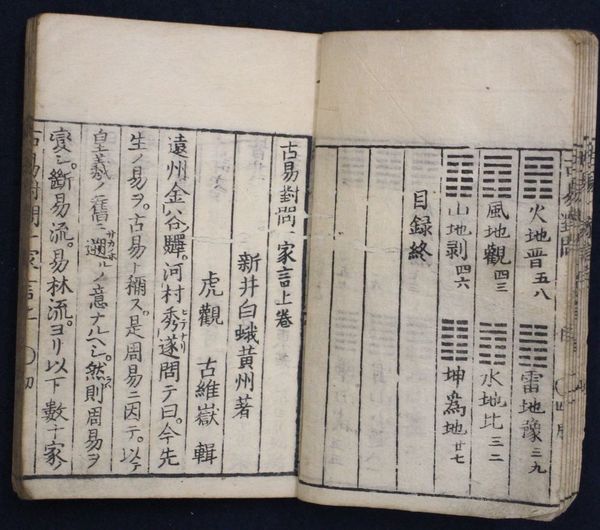 古易對問
火地晋五八 雷地豫三九
風地觀四三 水地比三二
山地剥四六 坤為地廿七
目録終
古易對問一家言上巻
新井白蛾黄州著
虎觀 古維嶽 輯
遠州金谷驛。河村秀遂問テ曰。今先
生ノ易ヲ。古易ト稱ス。是周易ニ因テ。以テ
皇羲ノ舊ニ遡ルノ意ナルヘシ。然則周易ヲ
變シ。斷易流。易林流。ヨリ以下數十家
古易對問一家言上 〇初